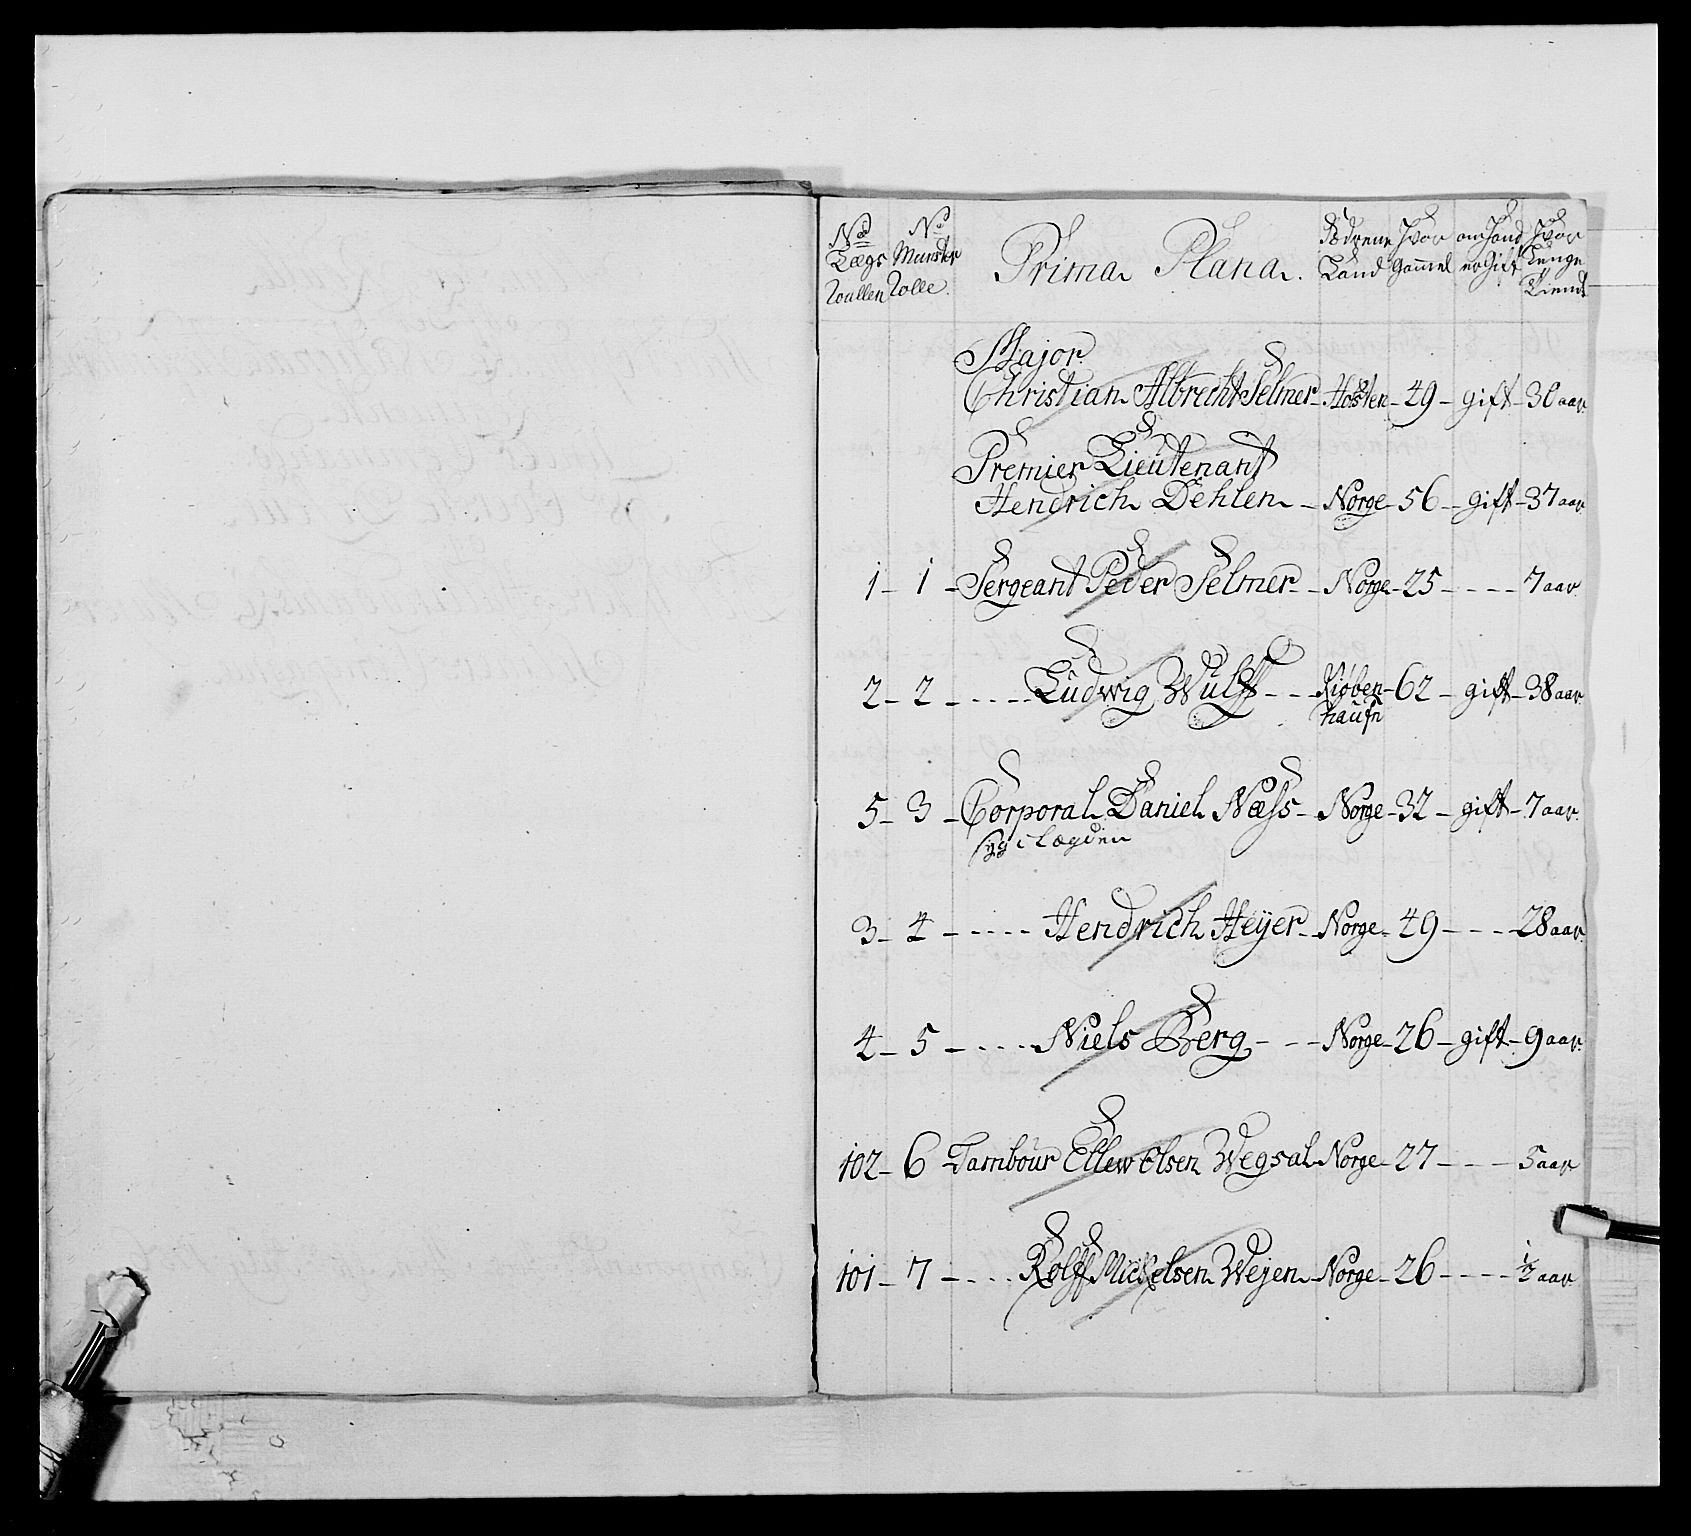 No No Prima Plana. Fødrene Hvor om Hand Hvor
Lægs Munster Land Gammel er Gift Lenge
Rullen Rolle. Tient
Major
Christian Albrecht Selmer - Holsten - 49 - gift - 30 aar
Premier Lieutenant
Hendrich Dehlen - Norge - 56 - gift - 37 aar
1 - 1 - Sergeant Peder Selmer - Norge - 25 - - - - 7 aar
2 - 2 - - - - Ludwig Wulff - - Kiøben- 62 - gift - 38 aar
haufn
5 - 3 - Corporal Daniel Næss - Norge - 32 - gift - 7 aar
syg i Lægden
3 - 4 - - - - Hendrich Heÿer - Norge - 49 - - - 28 aar
4 - 5 - - - - Niels Berg - - - Norge - 26 - gift - 9 aar
102 - 6 - Tambour Ellew Olsen Wegsal - Norge - 27 - - - 5 aar
101 - 7 - - - - Rolff Mickelsen Wejen - Norge - 26 - - - - 1/2 aar